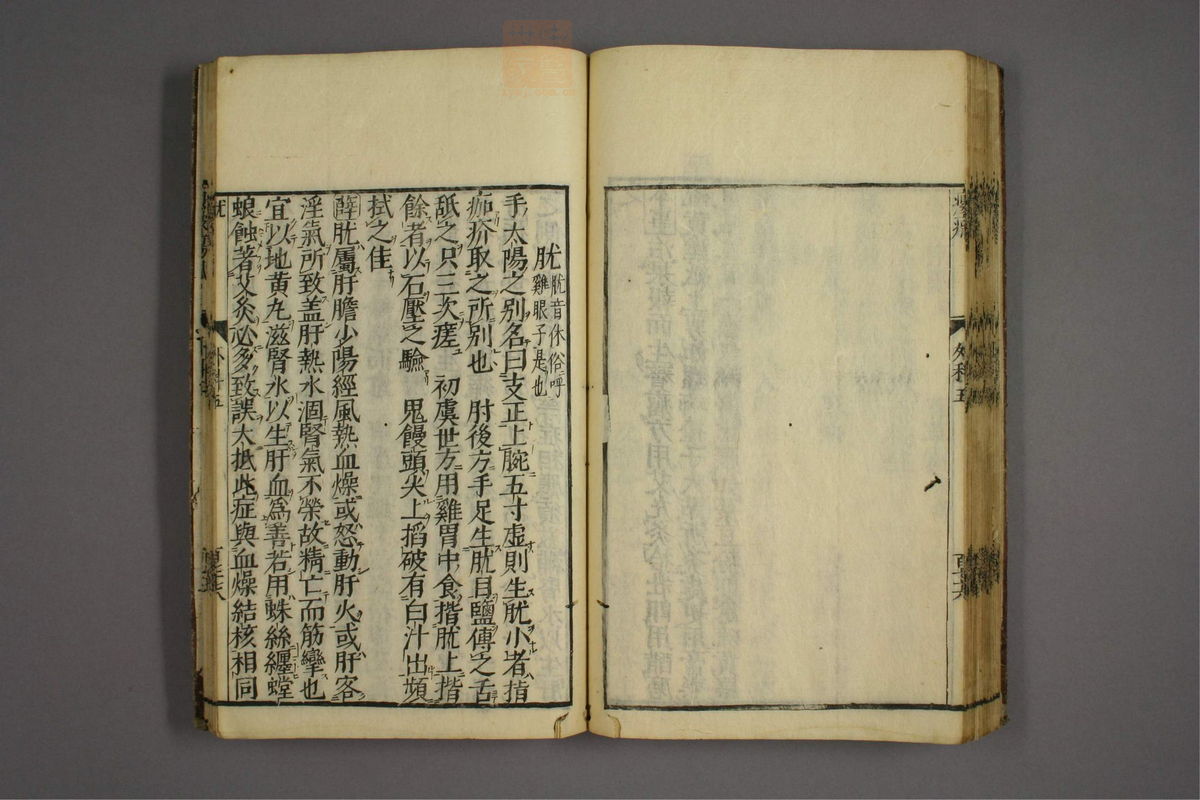 外科五
肬 肬音休俗呼
雞眼子是也
手太陽之别名曰支正上腕五寸虛則生肬小者指
痂疥取之所别也 肘後方手足生肬目鹽傅之舌
舐之只三次瘥 初虞世方用雞胃中食揩肬上揩
餘者以石壓之驗 鬼饅頭尖上搯破有白汁出頻
拭之佳
薛肬屬肝膽少陽經風熱血燥或怒動肝火或肝客
淫氣所致盖肝熱水涸腎氣不榮故精亡而筋攣也
宜以地黄丸滋腎水以生肝血爲善若用蛛絲纏螳
蜋蝕著艾灸必多致誤大抵此症與血燥結核相同
肬
外科五